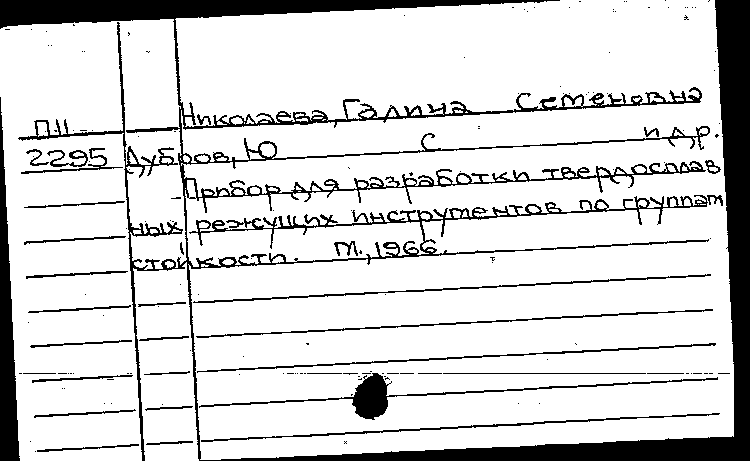 Николаева, Галина Семеновна
П11
2295 Дубров, Ю С и др.
Прибор для разработки твердосплав
ных режущих инструментов по группам
стойкости. М., 1966.